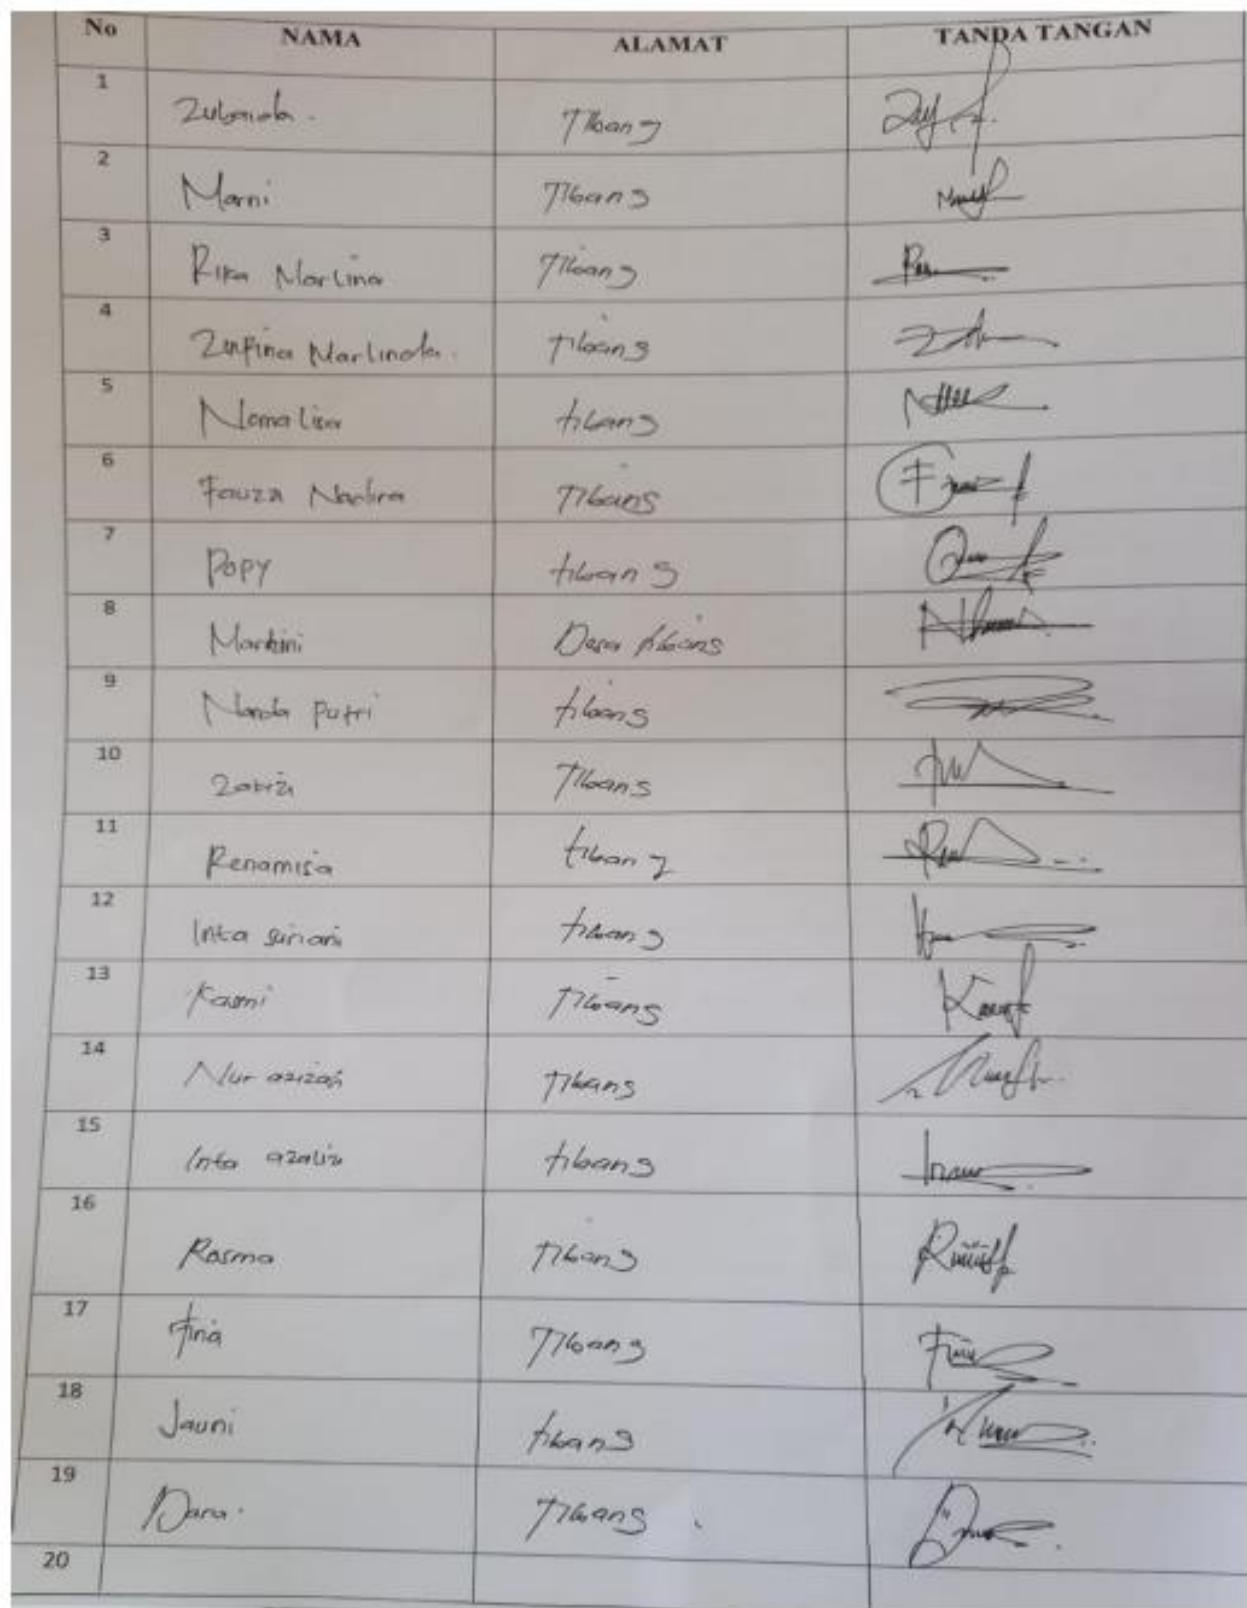 No NAMA ALAMAT TANDA TANGAN
1 Zubaida. Tibang
2 Marni Tibang
3 Rika Marlina Tibang
4 Zulfina Marlinda. tibang
5 Nomalisa tibang
6 Fauza Nadira Tibang
7 Popy tibang
8 Martini Desa tibang
9 Nanda Putri tibang
10 Tibang
11 Renamisa tibang
12 Inta suriani tibang
13 Kasmi Tibang
14 Nur azizah Tibang
15 Inta azaliza tibang
16 Rasma Tibang
17 Fina Tibang
18 Jauni tibang
19 Dara. Tibang
20